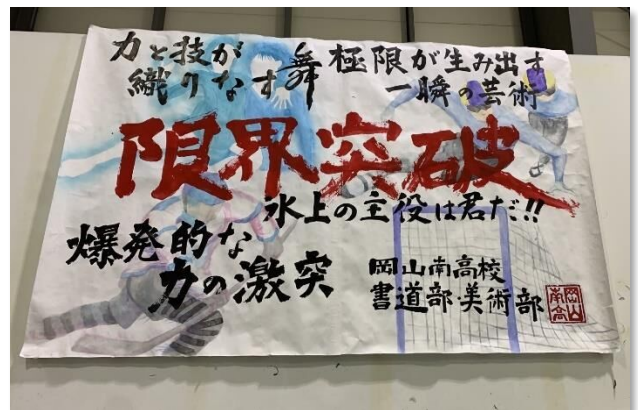 力と技が
織りなす舞
極限が生み出す
一瞬の芸術
限界突破
氷上の主役は君だ!!
爆発的な
力の激突
岡山南高校
書道部・美術部
岡山
南高